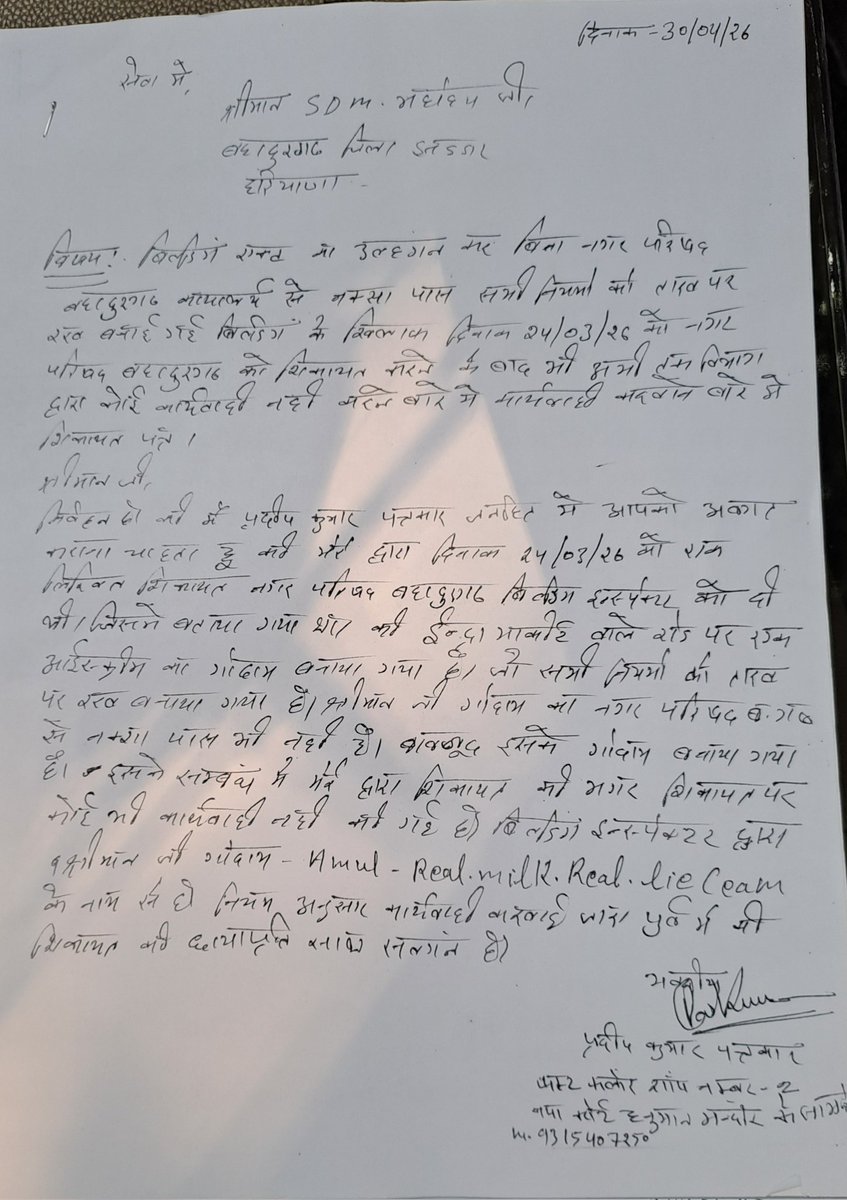 दिनाक - 30/04/26
सेवा में,
श्रीमान SDM. महोदय जी,
बहादुरगढ जिला झज्जर
हरियाणा -
विषय :- बिल्डिगं एक्ट का उल्हगंन कर बिना नगर परिषद
बहादुरगढ कार्यालय से नक्सा पास सभी नियमो को ताख पर
रख बनाई गई बिल्डिगं के खिलाफ दिनाक 24/03/26 को नगर
परिषद बहादुरगढ को शिकायत करने के बाद भी अभी तक विभाग
द्वारा कोई कार्यवाही नही करने बारे मे कार्यवाही करवाने बारे मे
शिकायत पत्र ।
श्रीमान जी,
निवेदन है की मैं प्रदीप कुमार पत्रकार जनहित मे आपको अवगत
कराना चाहता हू की मेरे द्वारा दिनाक 24/03/26 को एक
लिखित शिकायत नगर परिषद बहादुरगढ बिल्डिंग इन्स्पेक्टर को दी
थी। जिसमे बताया गया था की ईन्द्रा मार्कीट वाले रोड पर एक
आईसक्रीम का गोदाम बनाया गया है। जो सभी नियमो को ताख
पर रख बनाया गया है। श्रीमान जी गोदाम का नगर परिषद ब.गढ
से नक्शा पास भी नही है। बावजूद इसके गोदाम बनाया गया
है। इसके सम्बंध मे मेरे द्वारा शिकायत की मगर शिकायत पर
कोई भी कार्यवाही नही की गई है। बिल्डिगं इन्स्पेक्टर द्वारा
श्रीमान जी गोदाम - Amul - Real.milk.Real.Iie Ceam
के नाम से है नियम अनुसार कार्यवाही करवाई जाए पुर्व मे की
शिकायत की छायाप्रति साथ सलगनं है।
भवदीय
प्रदीप कुमार पत्रकार
फस्ट फलोर शॉप नम्बर - 2
नया कोर्ट हनुमान मन्दीर के सामने
M. 9315407250